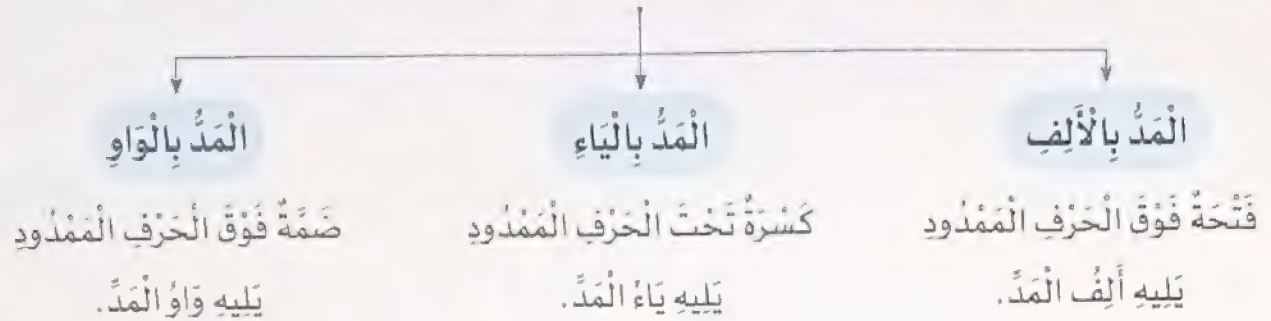 الْمَدُّ بِالْأَلِفِ
فَتْحَةٌ فَوْقَ الْحَرْفِ الْمَمْدُودِ
يَلِيهِ أَلِفُ الْمَدِّ.
الْمَدُّ بِالْيَاءِ
كَسْرَةٌ تَحْتَ الْحَرْفِ الْمَمْدُودِ
يَلِيهِ يَاءُ الْمَدِّ.
الْمَدُّ بِالْوَاوِ
ضَمَّةٌ فَوْقَ الْحَرْفِ الْمَمْدُودِ
يَلِيهِ وَاوُ الْمَدِّ.